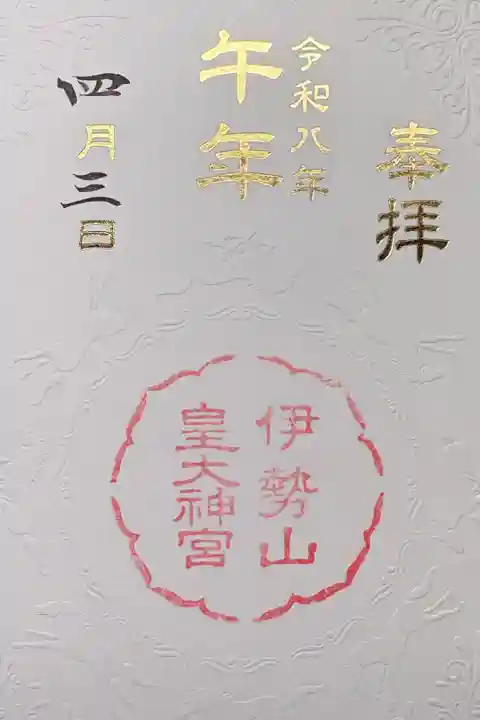 奉拝
令和八年
午年
四月三日
伊勢山
皇大神宮